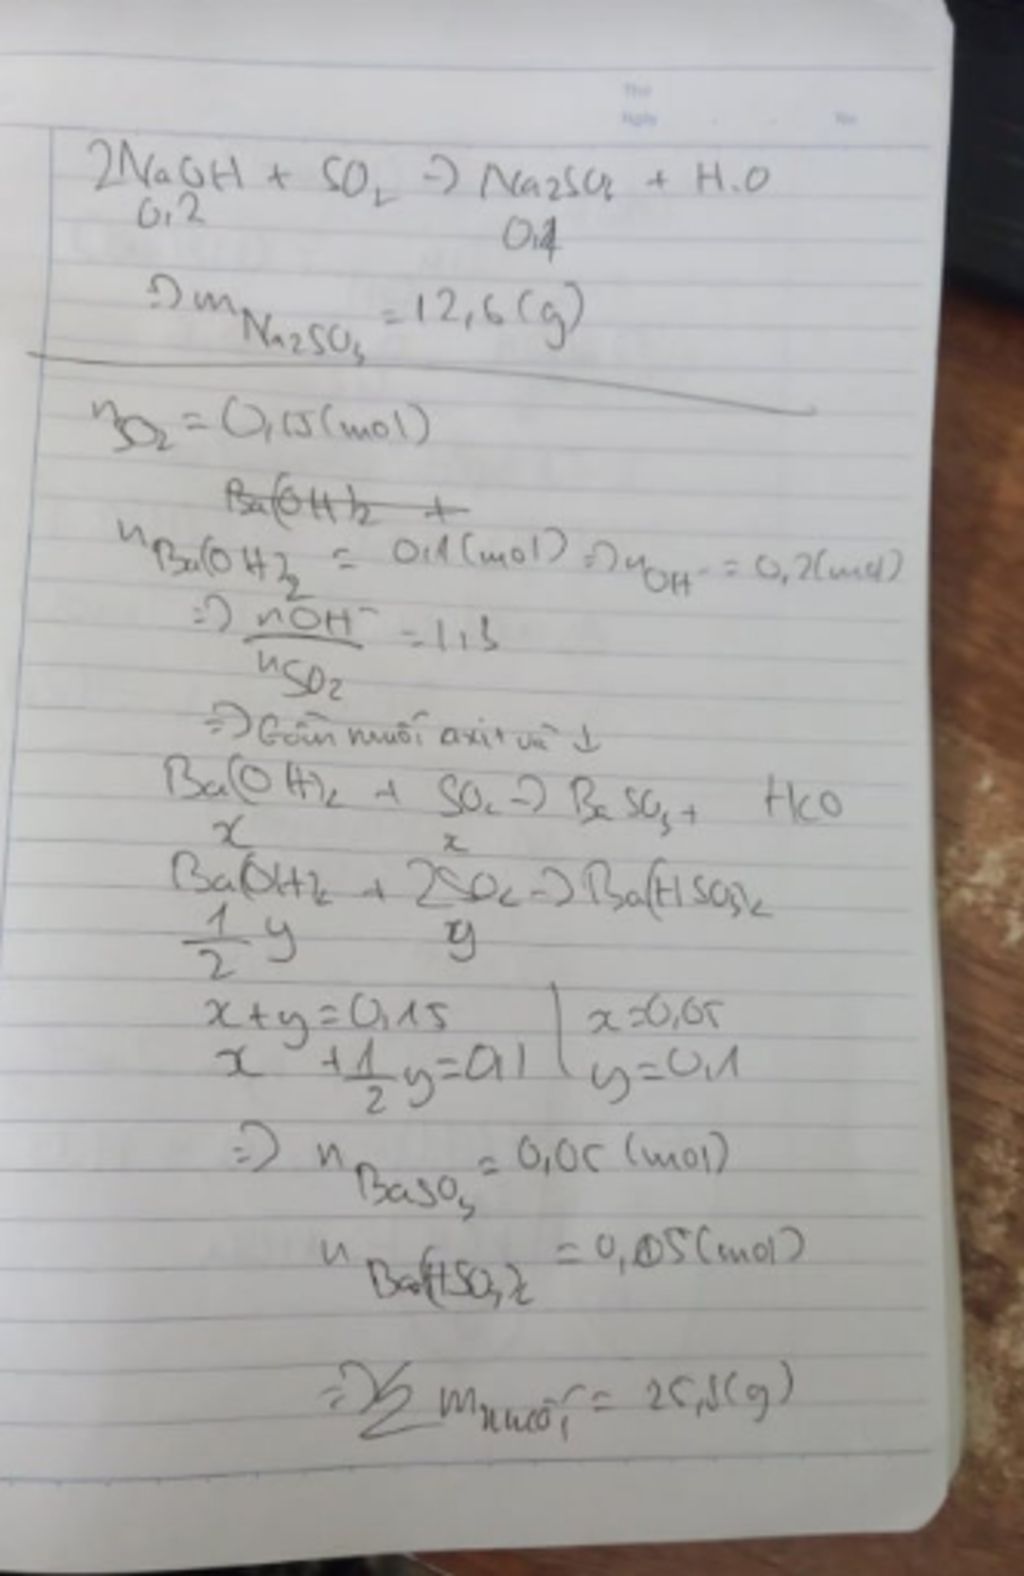 2NaOH + SO2 => Na2SO3 + H2O
0,2 0,1
=> mNa2SO3 = 12,6(g)
nSO2 = 0,15(mol)
Ba(OH)2 +
nBa(OH)2 = 0,1(mol) => nOH- = 0,2(mol)
=> nOH-/nSO2 = 1,3
=> Gồm muối axit và ↓
Ba(OH)2 + SO2 => BaSO3 + H2O
x x
Ba(OH)2 + 2SO2 => Ba(HSO3)2
1/2 y y
x+y=0,15 | x=0,05
x + 1/2 y=0,1 | y=0,1
=> nBaSO3 = 0,05 (mol)
nBa(HSO3)2 = 0,05(mol)
=> ∑ mmuối = 25,8(g)